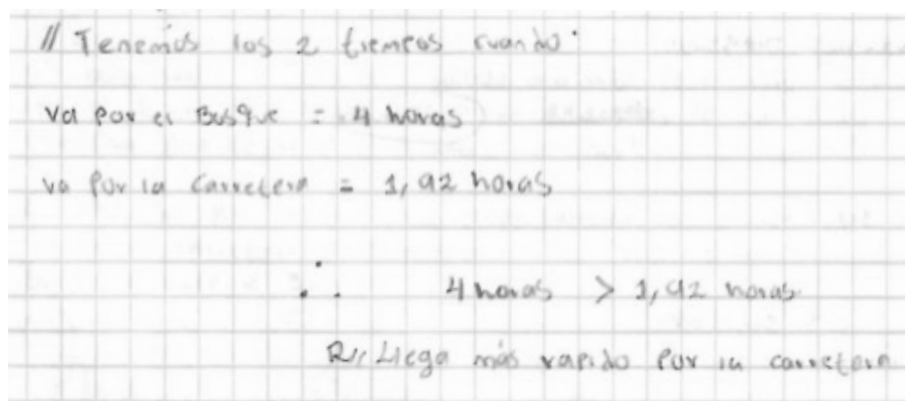 // Tenemos los 2 tiempos cuando:
va por el Bosque = 4 horas
va por la carretera = 1,92 horas
∴ 4 horas > 1,92 horas
R// Llega más rapido por la carretera